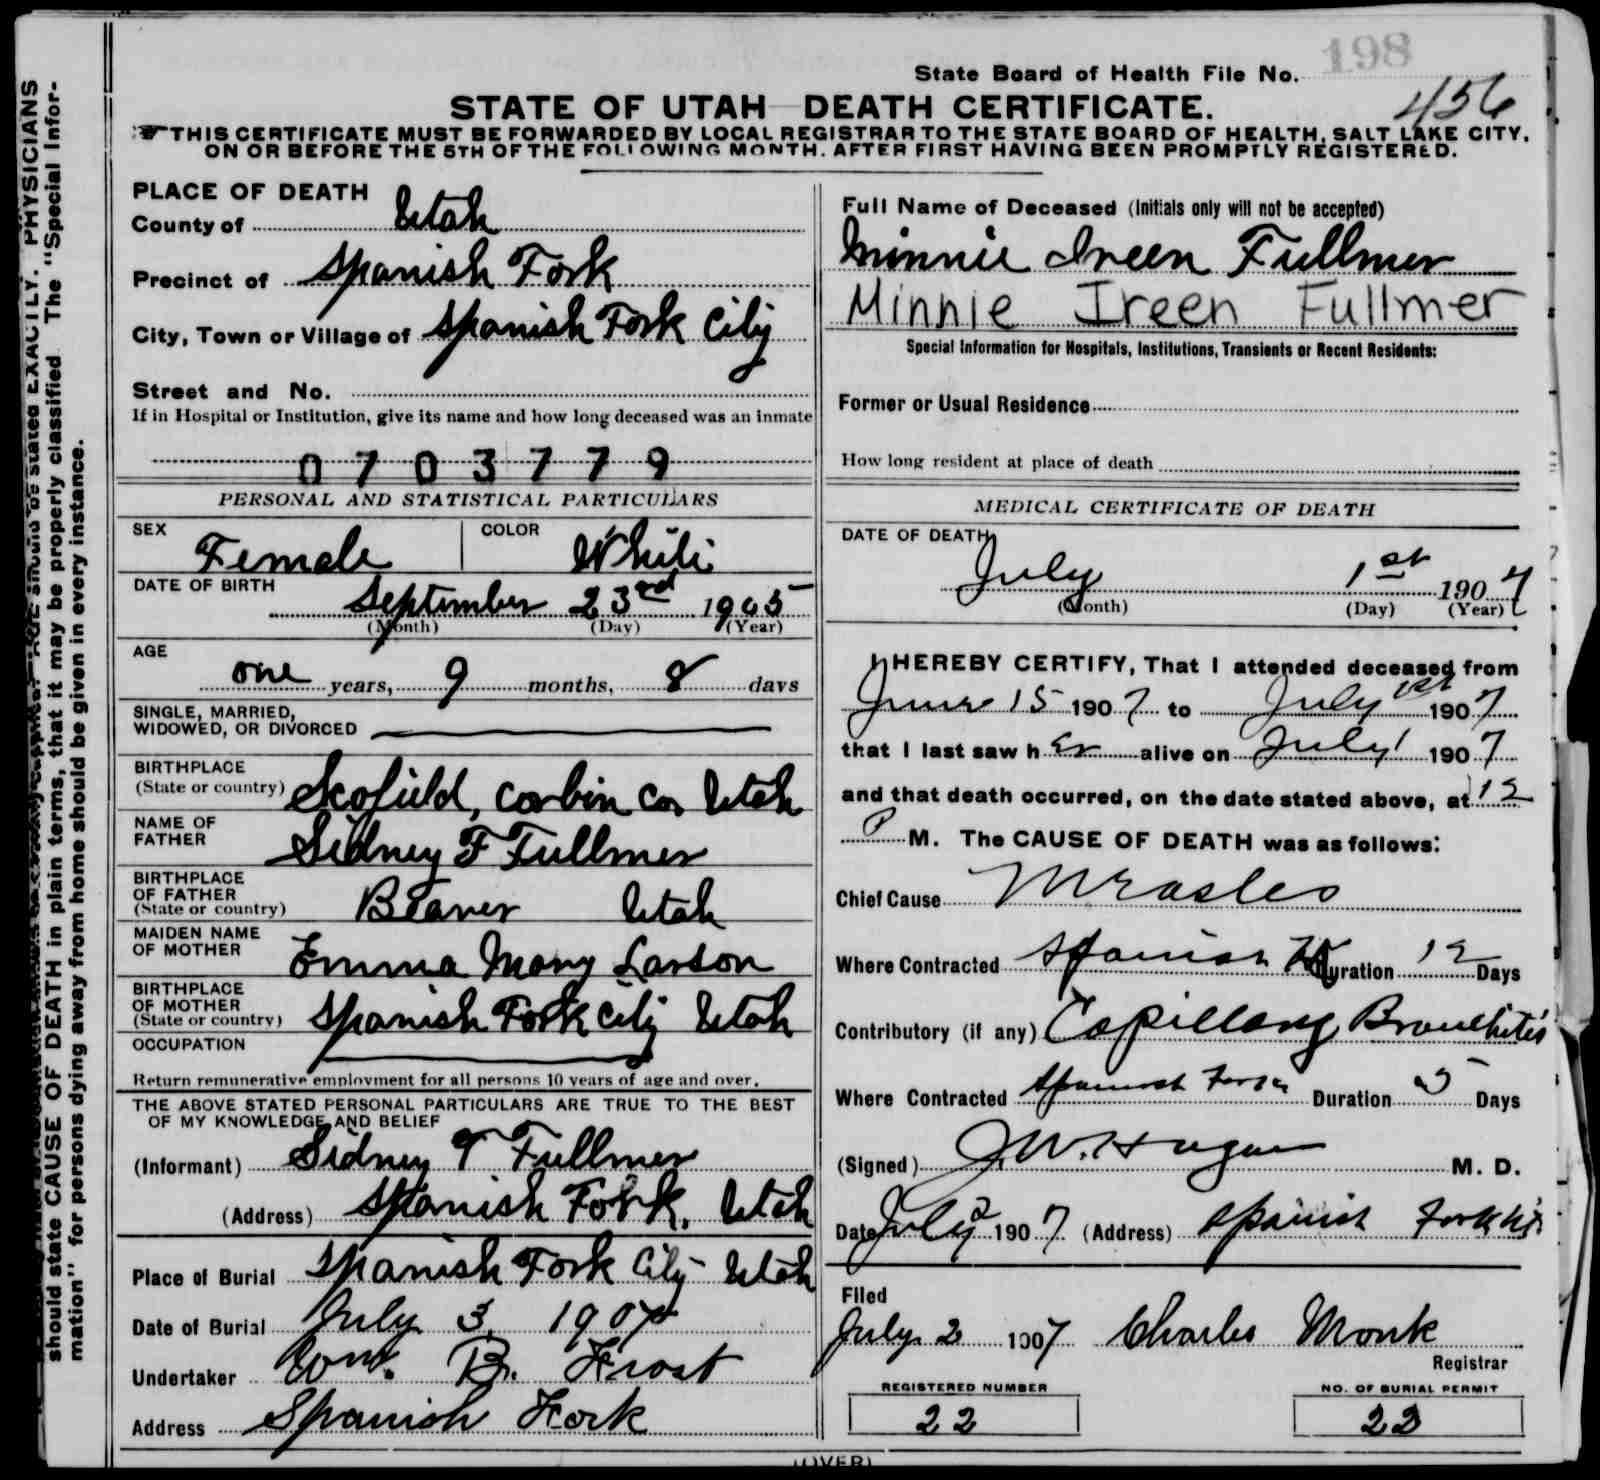 198
State Board of Health File No.
456
STATE OF UTAH DEATH CERTIFICATE.
THIS CERTIFICATE MUST BE FORWARDED BY LOCAL REGISTRAR TO THE STATE BOARD OF HEALTH, SALT LAKE CITY,
ON OR BEFORE THE 5TH OF THE FOLLOWING MONTH. AFTER FIRST HAVING BEEN PROMPTLY REGISTERED.
PLACE OF DEATH
County of Utah
Precinct of Spanish Fork
City, Town or Village of Spanish Fork City
Street and No.
If in Hospital or Institution, give its name and how long deceased was an inmate
0703779
PERSONAL AND STATISTICAL PARTICULARS
SEX Female COLOR White
DATE OF BIRTH
September 23rd 1905
(Month) (Day) (Year)
AGE
one years, 9 months, 8 days
SINGLE, MARRIED,
WIDOWED, OR DIVORCED
BIRTHPLACE
(State or country) Scofield, Carbin Co, Utah
NAME OF
FATHER Sidney F Fullmer
BIRTHPLACE
OF FATHER
(State or country) Beaver Utah
MAIDEN NAME
OF MOTHER Emma Mary Larson
BIRTHPLACE
OF MOTHER
(State or country) Spanish Fork City Utah
OCCUPATION
Return remunerative employment for all persons 10 years of age and over.
THE ABOVE STATED PERSONAL PARTICULARS ARE TRUE TO THE BEST
OF MY KNOWLEDGE AND BELIEF
(Informant) Sidney F Fullmer
(Address) Spanish Fork, Utah
Place of Burial Spanish Fork City Utah
Date of Burial July 3, 1907
Undertaker Wm. B. Frost
Address Spanish Fork
Full Name of Deceased (Initials only will not be accepted)
Minnie Ireen Fullmer
Minnie Ireen Fullmer
Special Information for Hospitals, Institutions, Transients or Recent Residents:
Former or Usual Residence
How long resident at place of death
MEDICAL CERTIFICATE OF DEATH
DATE OF DEATH
July 1st 1907
(Month) (Day) (Year)
I HEREBY CERTIFY, That I attended deceased from
June 15 1907 to July 1st 1907
that I last saw her alive on July 1 1907
and that death occurred, on the date stated above, at 12
P M. The CAUSE OF DEATH was as follows:
Chief Cause Measles
Where Contracted Spanish Fk Duration 12 Days
Contributory (if any) Capillary Bronchitis
Where Contracted Spanish Fork Duration 5 Days
(Signed) J.W. Hagan M. D.
Date July 2 1907 (Address) Spanish Fork Ut
Filed
July 2 1907 Charles Monk
Registrar
REGISTERED NUMBER
22
NO. OF BURIAL PERMIT
22
(OVER)
should be stated EXACTLY. PHYSICIANS
should state CAUSE OF DEATH in plain terms, that it may be properly classified. The "Special Infor-
mation" for persons dying away from home should be given in every instance.